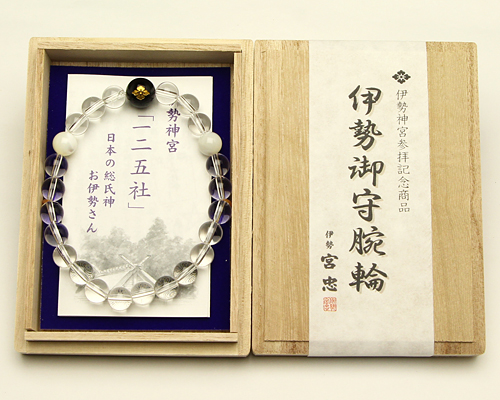 勢神宮
「一二五社」
日本の総氏神
お伊勢さん
伊勢神宮参拝記念商品
伊勢御守腕輪
伊勢 宮忠